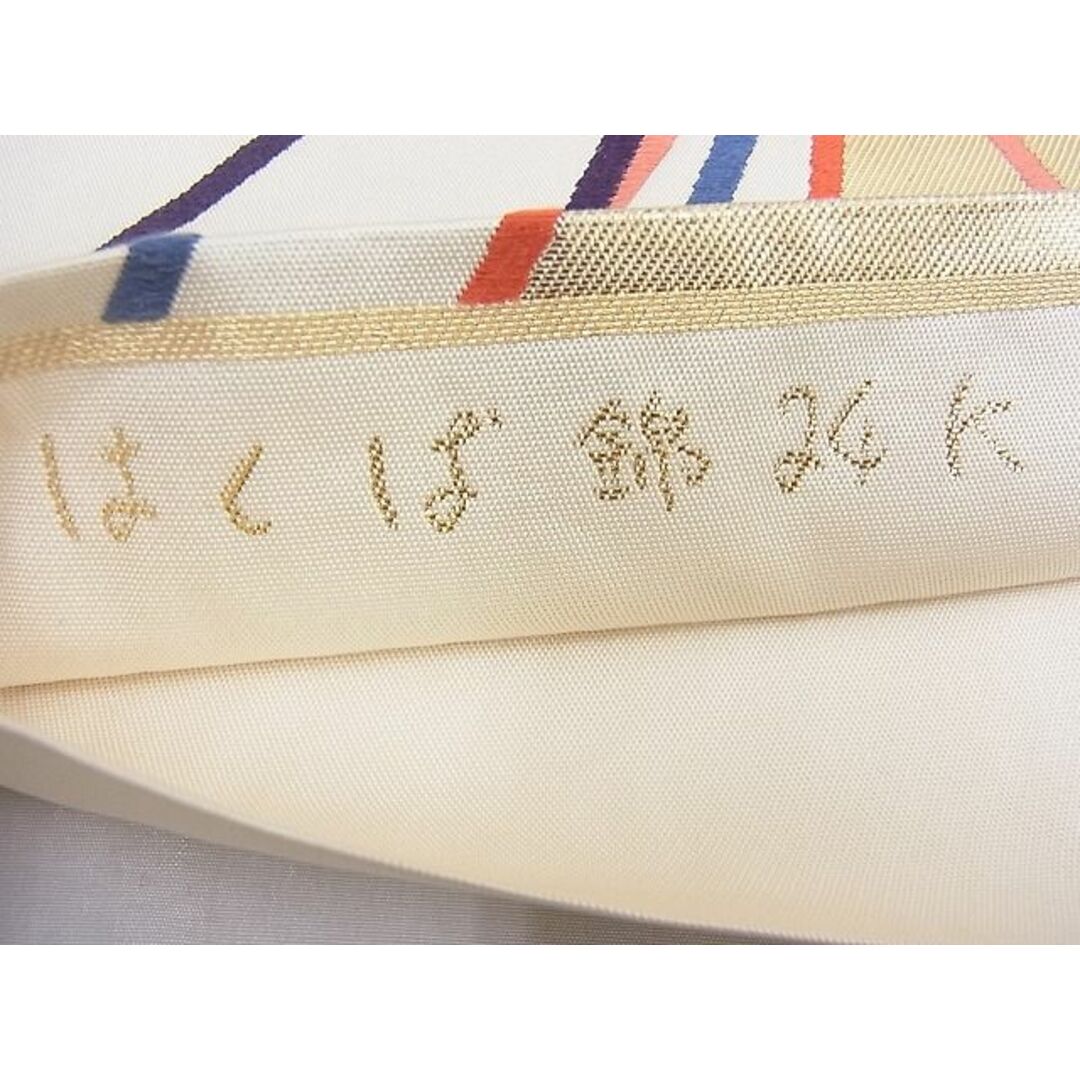 はくば錦24K